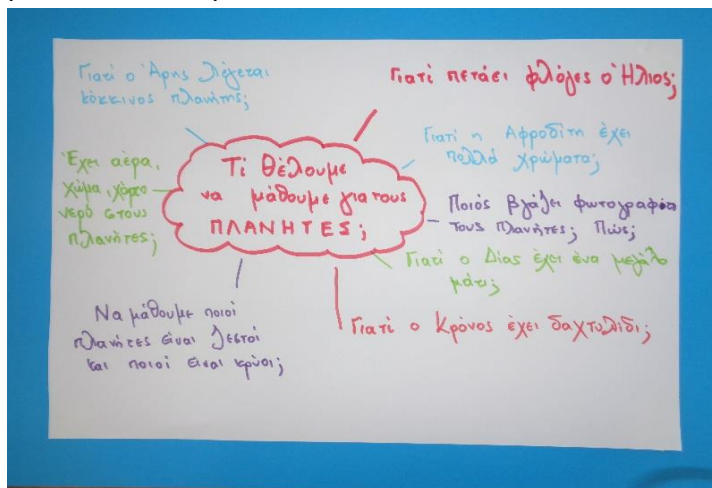 Γιατί ο Άρης λέγεται
κόκκινος πλανήτης;
Γιατί πετάει φλόγες ο Ήλιος;
Γιατί η Αφροδίτη έχει
πολλά χρώματα;
Έχει αέρα,
χώμα, χόρτο
νερό στους
πλανήτες;
Τί θέλουμε
να μάθουμε για τους
ΠΛΑΝΗΤΕΣ;
Ποιός βγάζει φωτογραφία
τους πλανήτες; Πώς;
Γιατί ο Δίας έχει ένα μεγάλο
μάτι;
Να μάθουμε ποιοί
πλανήτες είναι ζεστοί
και ποιοί είναι κρύοι;
Γιατί ο Κρόνος έχει δαχτυλίδι;